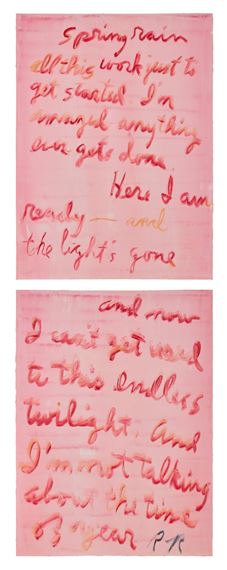 Spring rain
all this work just to
get started. I'm
amazed anything
ever gets done.
Here I am,
ready — and
the light's gone
and now
I can't get used
to this endless
twilight. And
I'm not talking
about the time
of year PR